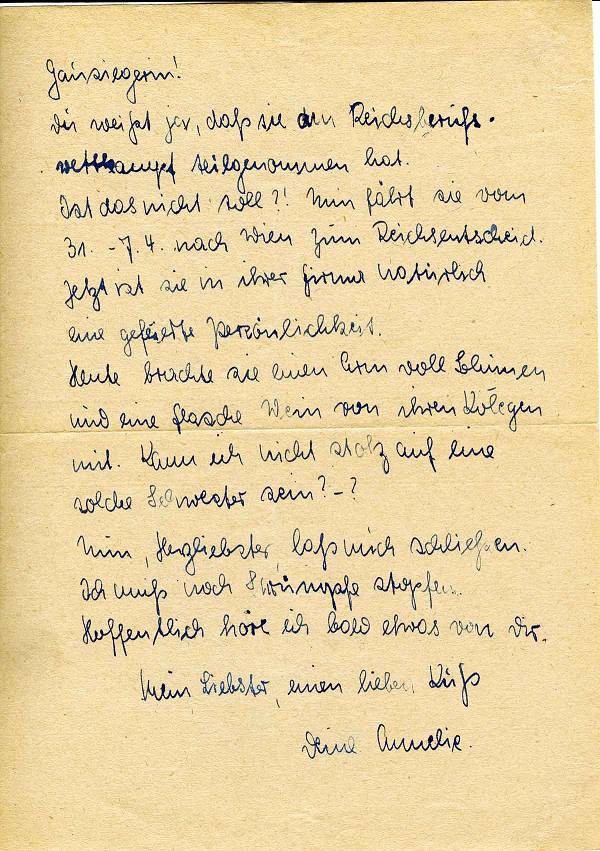 Gausiegerin!
Du weißt ja, daß sie am Reichsberufs-
wettkampf teilgenommen hat.
Ist das nicht toll?! Nun fährt sie vom
31. - 7.4. nach Wien zum Reichsentscheid.
Jetzt ist sie in ihrer Firma natürlich
eine gefeierte Persönlichkeit.
Heute brachte sie einen Arm voll Blumen
und eine Flasche Wein von ihren Kollegen
mit. Kann ich nicht stolz auf eine
solche Schwester sein? - ?
Nun, Herzliebster, laß mich schließen.
Ich muß noch Strümpfe stopfen.
Hoffentlich höre ich bald etwas von Dir.
Mein Liebster, einen lieben Kuß
Deine Annelie.